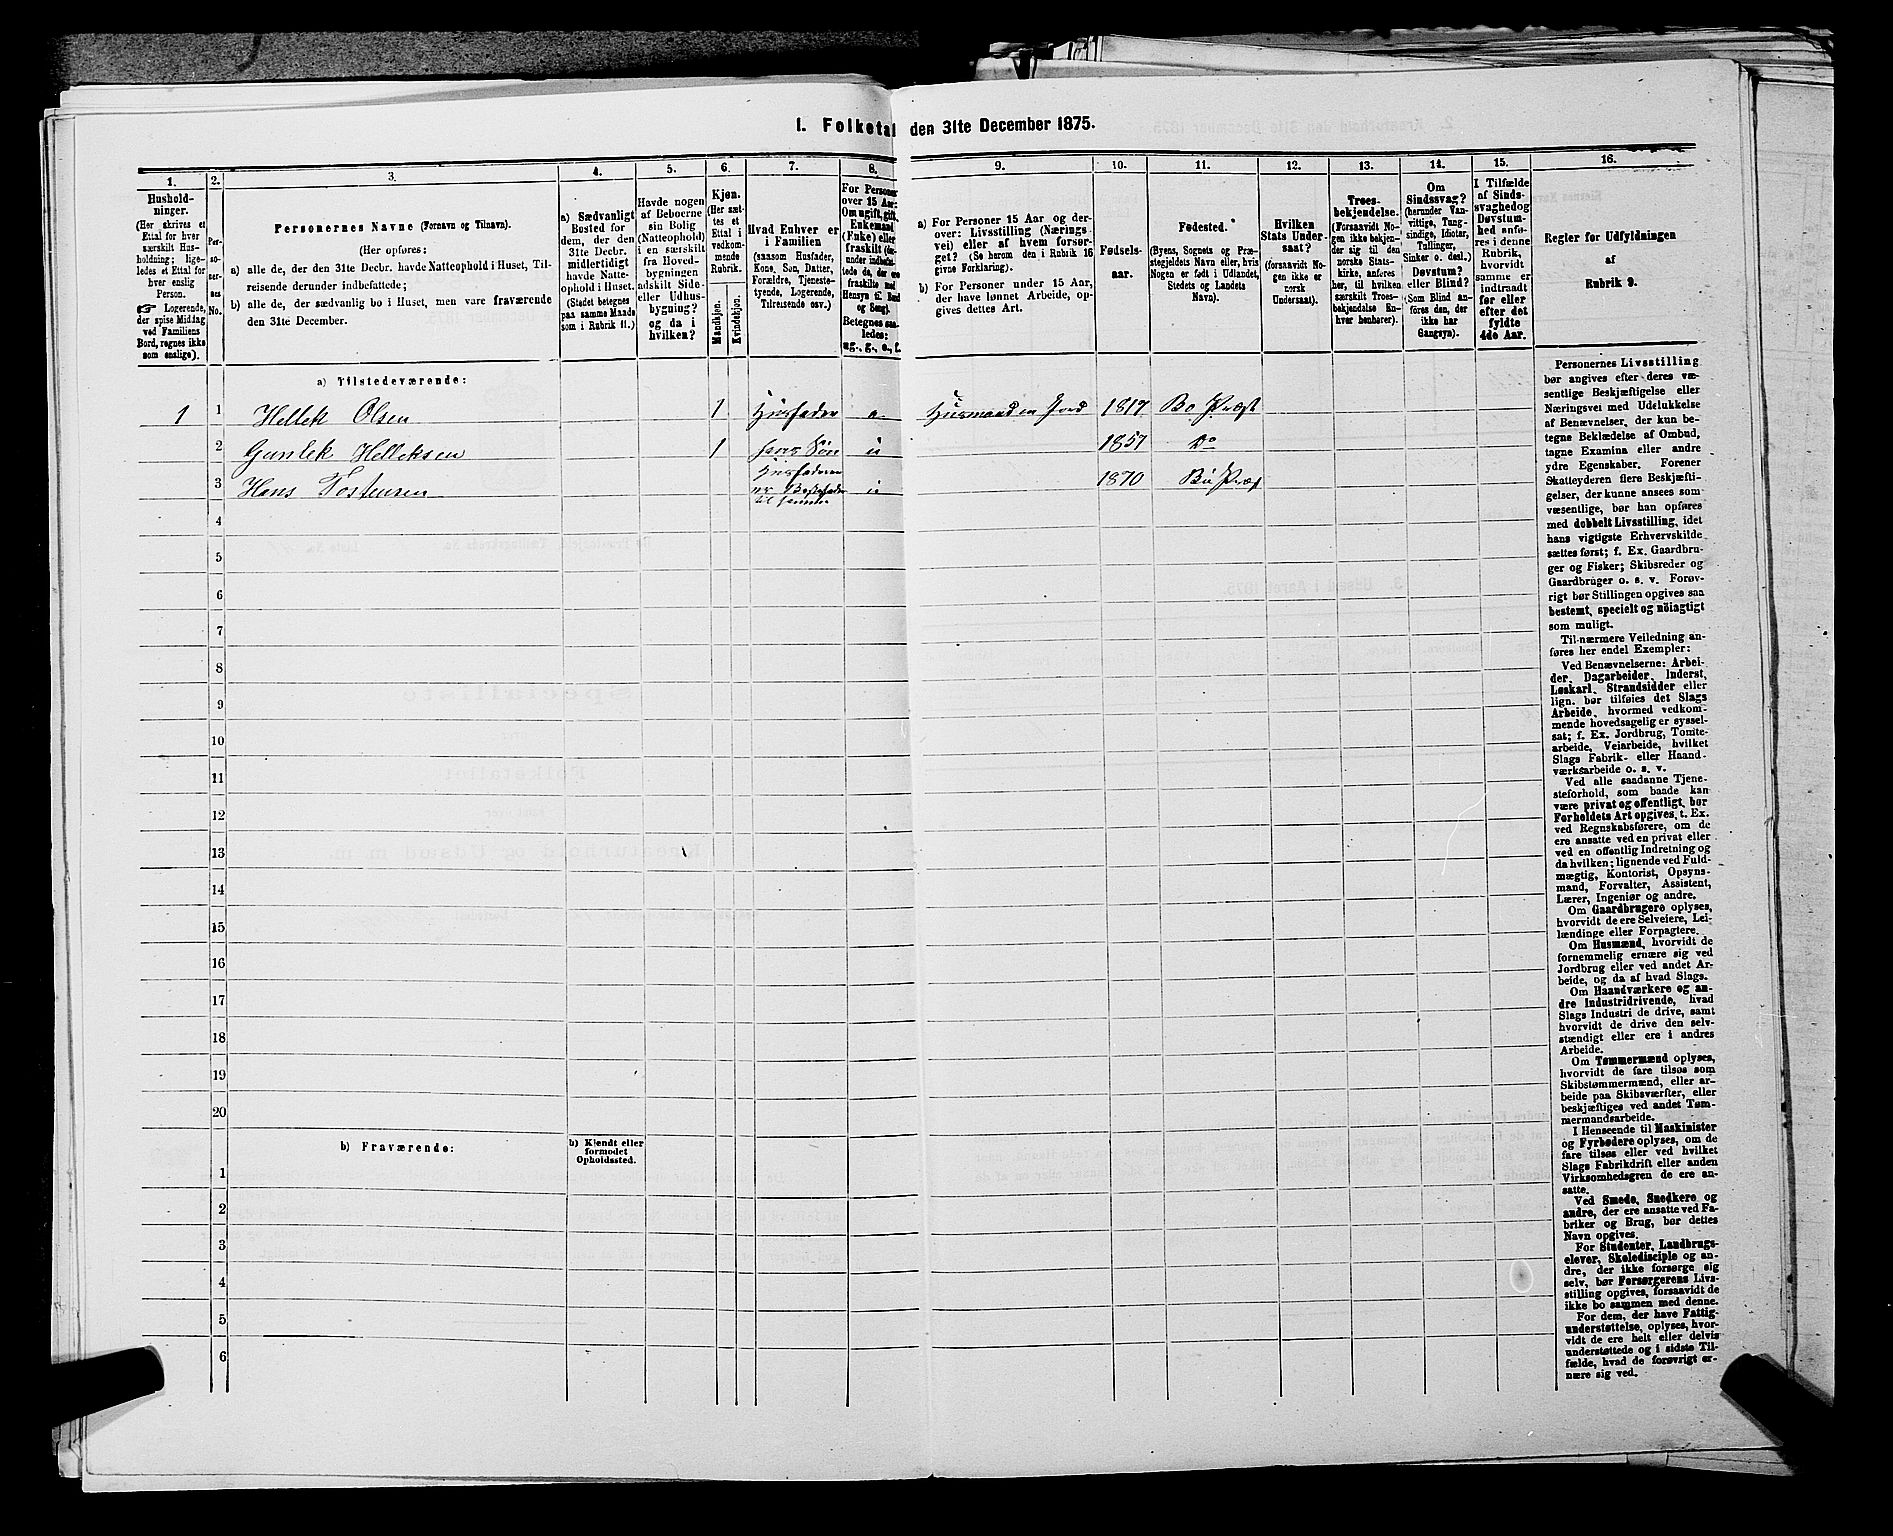 1. Folketal den 31te December 1875.
1.
Hushold-
ninger.
(Her skrives et
Ettal for hver
særskilt Hus-
holdning; lige-
ledes et Ettal for
hver enslig
Person.
☞ Logerende,
der spise Middag
ved Familiens
Bord, regnes ikke
som enslige).
2.
Per-
so-
ner-
nes
No.
3.
Personernes Navne (Fornavn og Tilnavn).
(Her opføres:
a) alle de, der den 31te Decbr. havde Natteophold i Huset, Til-
reisende derunder indbefattede;
b) alle de, der sædvanlig bo i Huset, men vare fraværende
den 31te December.
4.
a) Sædvanligt
Bosted for
dem, der den
31te Decbr.
midlertidigt
havde Natte-
ophold i Huset.
(Stedet betegnes
paa samme Maade
som i Rubrik 11.)
5.
Havde nogen
af Beboerne
sin Bolig
(Natteophold)
i en særskilt
fra Hoved-
bygningen
adskilt Side-
eller Udhus-
bygning?
og da i
hvilken?
6.
Kjøn.
(Her sæt-
tes et
Ettal i
vedkom-
mende
Rubrik.
Mandkjøn.
Kvindekjøn.
7.
Hvad Enhver er
i Familien
(saasom Husfader,
Kone, Søn, Datter,
Forældre, Tjeneste-
tyende, Logerende,
Tilreisende osv.)
8.
For Personer
over 15 Aar:
Om ugift, gift,
Enkemand
(Enke) eller
fraskilt
Betegnes saa-
ledes:
ug., g., e., f.
9.
a) For Personer 15 Aar og der-
over: Livsstilling (Nærings-
vei) eller af hvem forsør-
get? (Se herom den i Rubrik 16
givne Forklaring).
b) For Personer under 15 Aar,
der have lønnet Arbeide, op-
gives dettes Art.
10.
Fødsels-
aar.
11.
Fødested.
(Byens, Sognets og Præ-
stegjeldets Navn eller, hvis
Nogen er født i Udlandet,
Stedets og Landets
Navn).
12.
Hvilken
Stats Under-
saat?
(forsaavidt No-
gen ikke er
norsk
Undersaat).
13.
Troes-
bekjendelse.
(Forsaavidt No-
gen ikke bekjen-
der sig til den
norske Stats-
kirke, anføres
her, til hvilken
særskilt Troes-
bekjendelse En-
hver henhører).
14.
Om
Sindssvag?
(herunder Van-
vittige, Tung-
sindige, Idioter,
Tullinger,
Sinker o. desl.)
Døvstum?
eller Blind?
(Som Blind an-
føres den, der
ikke har
Gangsyn).
15.
I Tilfælde
af Sinds-
svaghed og
Døvstum-
hed anfø-
res i denne
Rubrik,
hvorvidt
samme er
indtraadt
før eller
efter det
fyldte
4de Aar.
16.
Regler for Udfyldningen
af
Rubrik 9.
a) Tilstedeværende:
1 1 Hellek Olsen 1 Husfader e Husmand m Jord 1817 Bø Præst
2 Gunlek Helleksen 1 hans Søn u 1857 Do
3 Hans Tostensen Husfaderen er Bestefader til samme u 1870 Bø Præs
4
5
6
7
8
9
10
11
12
13
14
15
16
17
18
19
20
b) Fraværende:
b) Kjendt eller
formodet
Opholdssted.
1
2
3
4
5
6
Personernes Livsstilling
bør angives efter deres væ-
sentlige Beskjæftigelse eller
Næringsvei med Udelukkelse
af Benævnelser, der kun be-
tegne Beklædelse af Ombud,
tagne Examina eller andre
ydre Egenskaber. Forener
Skatteyderen flere Beskjæfti-
gelser, der kunne ansees som
væsentlige, bør han opføres
med dobbelt Livsstilling, idet
hans vigtigste Erhvervskilde
sættes først; f. Ex. Gaardbru-
ger og Fisker; Skibsreder og
Gaardbruger o. s. v. Forøv-
rigt bør Stillingen opgives saa
bestemt, specielt og nøiagtigt
som muligt.
Til nærmere Veiledning an-
føres her endel Exempler:
Ved Benævnelserne: Arbei-
der, Dagarbeider, Inderst,
Løskarl, Strandsidder eller
lign. bør tilføies det Slags
Arbeide, hvormed vedkom-
mende hovedsagelig er syssel-
sat; f. Ex. Jordbrug, Tomte-
arbeide, Veiarbeide, hvilket
Slags Fabrik- eller Haand-
værksarbeide o. s. v.
Ved alle saadanne Tjene-
steforhold, som baade kan
være privat og offentligt, bør
Forholdets Art opgives, t. Ex.
ved Regnskabsførere, om de
ere ansatte ved en privat eller
ved en offentlig Indretning og
da hvilken; lignende ved Fuld-
mægtig, Kontorist, Opsyns-
mand, Forvalter, Assistent,
Lærer, Ingeniør og andre.
Om Gaardbrugere oplyses,
hvorvidt de ere Selveiere, Lei-
lændinge eller Forpagtere.
Om Husmænd, hvorvidt de
fornemmelig ernære sig ved
Jordbrug eller ved andet Ar-
beide, og da af hvad Slags.
Om Haandværkere og an-
dre Industridrivende, hvad
Slags Industri de drive, samt
hvorvidt de drive den selv-
stændigt eller ere i andres
Arbeide.
Om Tømmermænd oplyses,
hvorvidt de fare tilsøs som
Skibstømmermænd, eller ar-
beide paa Skibsværfter, eller
beskjæftiges ved andet Tøm-
mermandsarbeide.
I Henseende til Maskinister
og Fyrbødere oplyses, om de
fare tilsøs eller ved hvilket
Slags Fabrikdrift eller anden
Virksomhedsgren de ere an-
satte.
Ved Smede, Snedkere og
andre, der ere ansatte ved Fa-
briker og Brug, bør dettes
Navn opgives.
For Studenter, Landbrugs-
elever, Skoledisciple og an-
dre, der ikke forsørge sig
selv, bør Forsørgerens Livs-
stilling opgives, forsaavidt de
ikke bo sammen med denne.
For dem, der have Fattig-
understøttelse, oplyses, hvor-
vidt de ere helt eller delvis
understøttede og i sidste Til-
fælde, hvad de forøvrigt er-
nære sig ved.